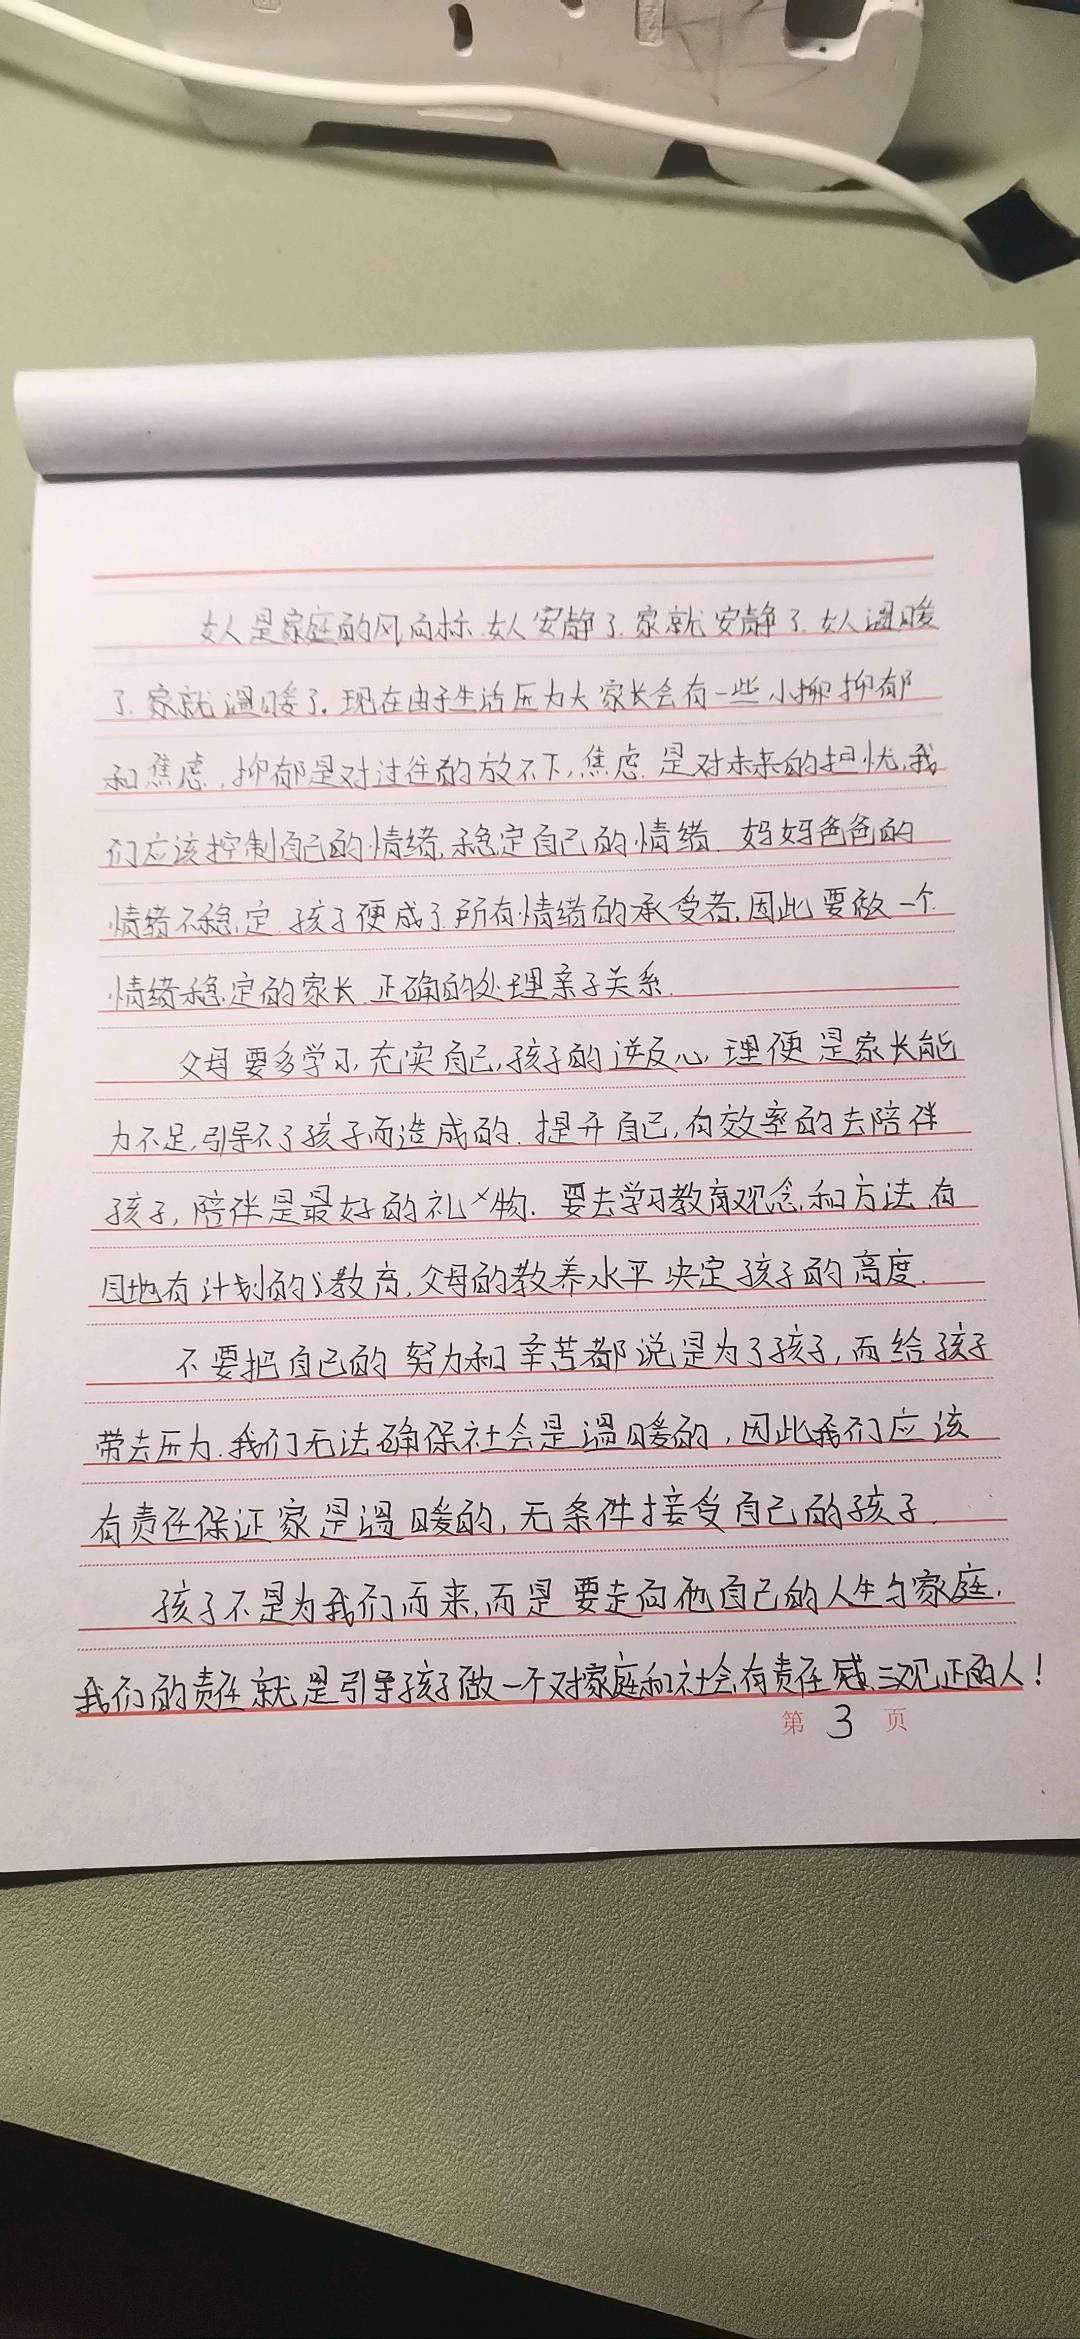 女人是家庭的风向标.女人安静了.家就安静了.女人温暖
了.家就温暖了.现在由于生活压力大家长会有一些小抑郁
和焦虑,抑郁是对过往的放不下,焦虑.是对未来的担忧,我
们应该控制自己的情绪,稳定自己的情绪.妈妈爸爸的
情绪不稳定.孩子便成了所有情绪的承受者,因此要做一个
情绪稳定的家长.正确的处理亲子关系.
父母要多学习,充实自己,孩子的逆反心理便是家长能
力不足,引导不了孩子而造成的.提升自己,有效率的去陪伴
孩子,陪伴是最好的礼物.要去学习教育观念,和方法,有
目地有计划的教育,父母的教养水平决定孩子的高度.
不要把自己的努力和辛苦都说是为了孩子,而给孩子
带去压力.我们无法确保社会是温暖的,因此我们应该
有责任保证家是温暖的,无条件接受自己的孩子.
孩子不是为我们而来,而是要走向他自己的人生与家庭,
我们的责任就是引导孩子做一个对家庭和社会有责任感,三观正的人!
第 3 页